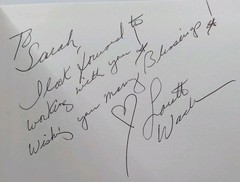 To
Sarah,
I look forward to
working with you!
Wishing you many Blessings!
Loretta